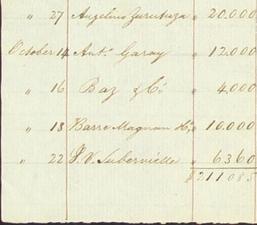 " 27 Angelino Zurutuza " 20.000
October 14 Ant.º Garay " 12.000
" 16 Baz & Cº " 4.000
" 18 Barre Magnan " 10.000
" 22 J. V. Subervielle " 6360
$211.085